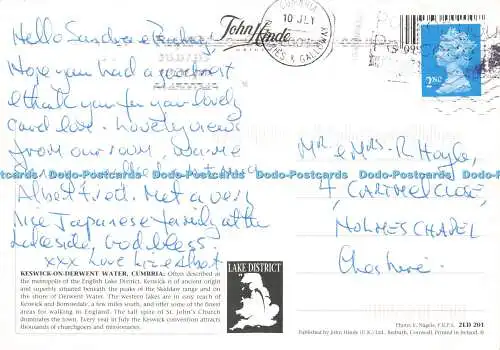 Hello Sandra & 
Hope you had a 
& thank you for your lovely
card love. Lovely views
from our room, 
Albert tired. Met a very
nice Japanese family at the
lakeside, God bless.
xxx Love Liz & Albert
John Hinde
CUMBRIA
10 JLY
DUMFRIES & GALLOWAY
2ND
Mr & Mrs R. 
4, CARTMEL CLOSE,
HOLMES CHAPEL
Cheshire.
Dodo-Postcards Dodo-Postcards Dodo-Postcards Dodo-Postcards Dodo-Postcards Dodo-Postcards
KESWICK-ON-DERWENT WATER, CUMBRIA: Often described as
the metropolis of the English Lake District. Keswick is of ancient origin
and superbly situated beneath the peaks of the Skiddaw range and on
the shore of Derwent Water. The western lakes are in easy reach of
Keswick and Borrowdale, a few miles south, and offer some of the finest
areas for walking in England. The tall spire of St. John's Church
dominates the town. Every year in July the Keswick convention attracts
thousands of churchgoers and missionaries.
LAKE DISTRICT
Photo: E. Nägele, F.R.P.S. 2LD 201
Published by John Hinde (U.K.) Ltd., Redruth, Cornwall. Printed in Ireland. ©